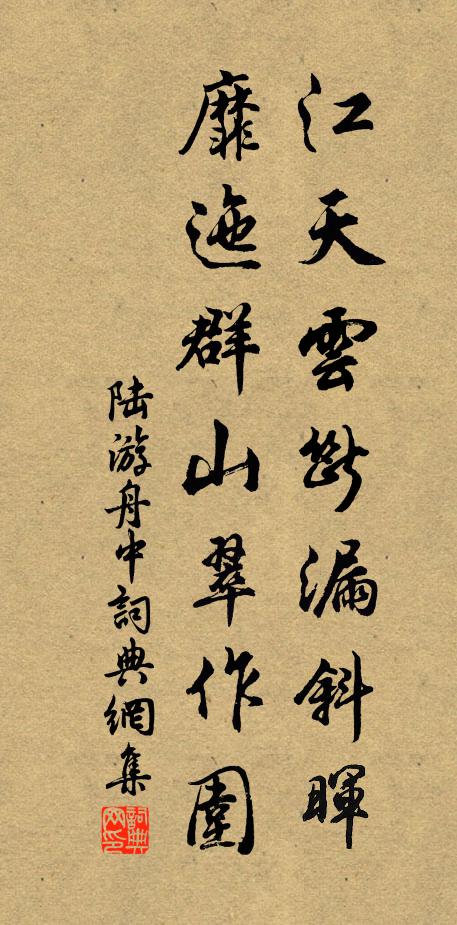 江天雲斷漏斜暉
靡迤群山翠作圍
陆游舟中詞典網集
詞典網印